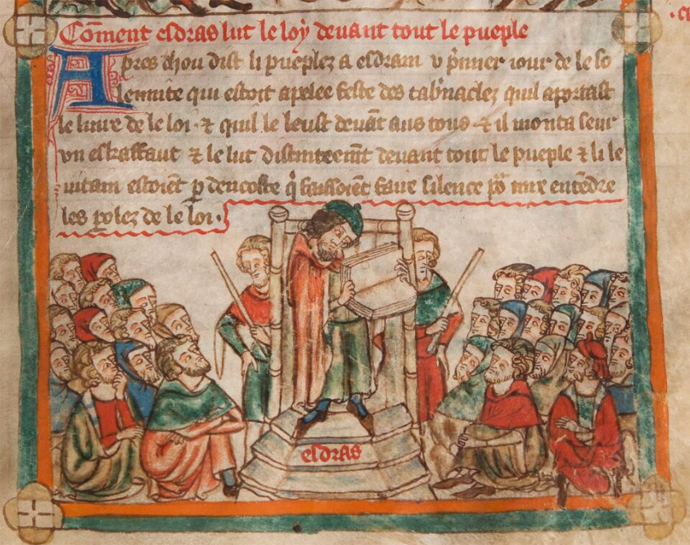 Co̅ment esdras lut le loy deuant tout le pueple
Apres chou dist li pueplez a esdram v p̅mier iour de le so
lemnite qui estoit apelee feste des tab̾naclez quil aportast
le liure de le loi ⁊ quil le leust deua̅t aus tous ⁊ il monta seur
vn eskaffaut ⁊ le lut distinteem̅t deuant tout le pueple ⁊ li le
uitam estoie̅t p̱ dencoste q̇ faisoient faire silence po᷑ mix ente̅dre
les p̱olez de le loi.
esdras